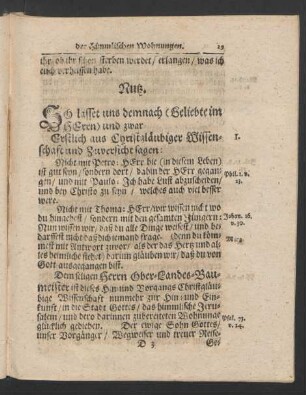 der Himmlischen Wohnungen. 29
ihr/ ob ihr schon sterben werdet/ erlangen/ was ich
euch verheissen habe.
Nutz.
SO lasset uns demnach (Geliebte im
HErrn) und zwar
Erstlich aus Christgläubiger Wissen- 1.
schaft und Zuversicht sagen:
Nicht mit Petro: HErr hie (in diesem Leben)
ist gut seyn/ sondern dort/ dahin der HErr gegan-
gen/ und mit Paulo: Ich habe Lust abzuscheiden/ Phil. 1. v.
und bey Christo zu seyn/ welches auch viel besser 23.
were.
Nicht mit Thoma: HErr/ wir wissen nicht wo
du hingehest/ sondern mit den gesamten Jüngern: Johan. 16.
Nun wissen wir/ daß du alle Dinge weissest/ und be- v. 30.
darffest nicht daß dich jemand frage. (denn du kömst
meist mit Antwort zuvor/ als der das Hertz und al-
les heimliche siehet) darum gläuben wir/ daß du von
Gott ausgegangen bist.
Dem seligen Herrn Ober-Landes-Bau-
meister ist dieses Hin und Vorgangs Christgläu-
bige Wissenschaft nunmehr zur Hin und Ein-
kunft/ in die Stadt Gottes/ das himmlische Jeru-
salem/ und dero darinnen zubereiteten Wohnunge
glücklich gediehen. Der ewige Sohn Gottes/ Psal. 73.
unser Vorgänger/ Wegweiser und treuer Reise- v. 24.
D 3 Gei